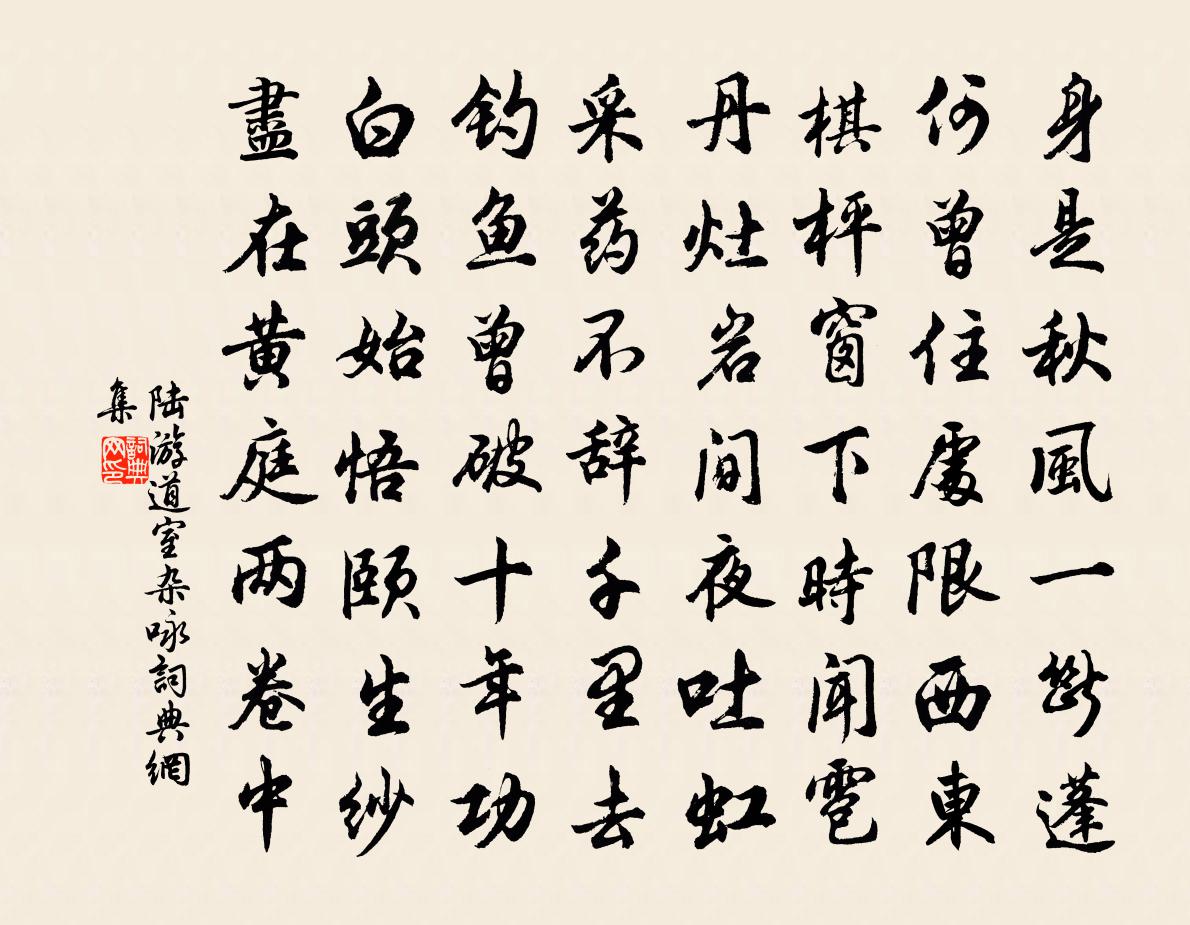 身是秋風一斷蓬
何曾住處限西東
棋枰窗下時闻雹
丹灶岩间夜吐虹
采药不辞千里去
钓鱼曾破十年功
白頭始悟颐生妙
盡在黄庭两卷中
陆游道室杂咏詞典網
集
詞典
网印